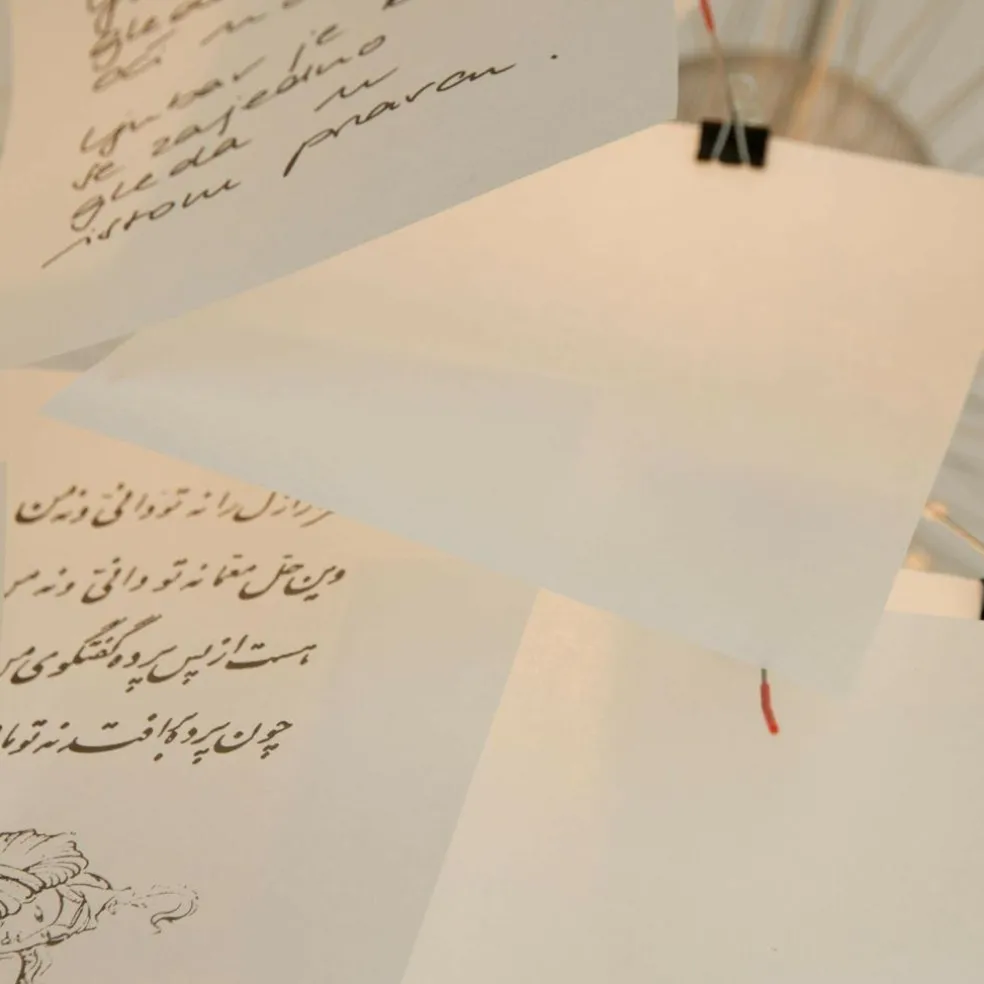 gleda
oči u
Ljubav je
se zajedno
gleda u
istom pravcu.
ازل را نه تو دانی و نه من
وین حل معما نه تو دانی و نه
هست از پس پرده گفتگوی
چون پرده برافتد نه تو